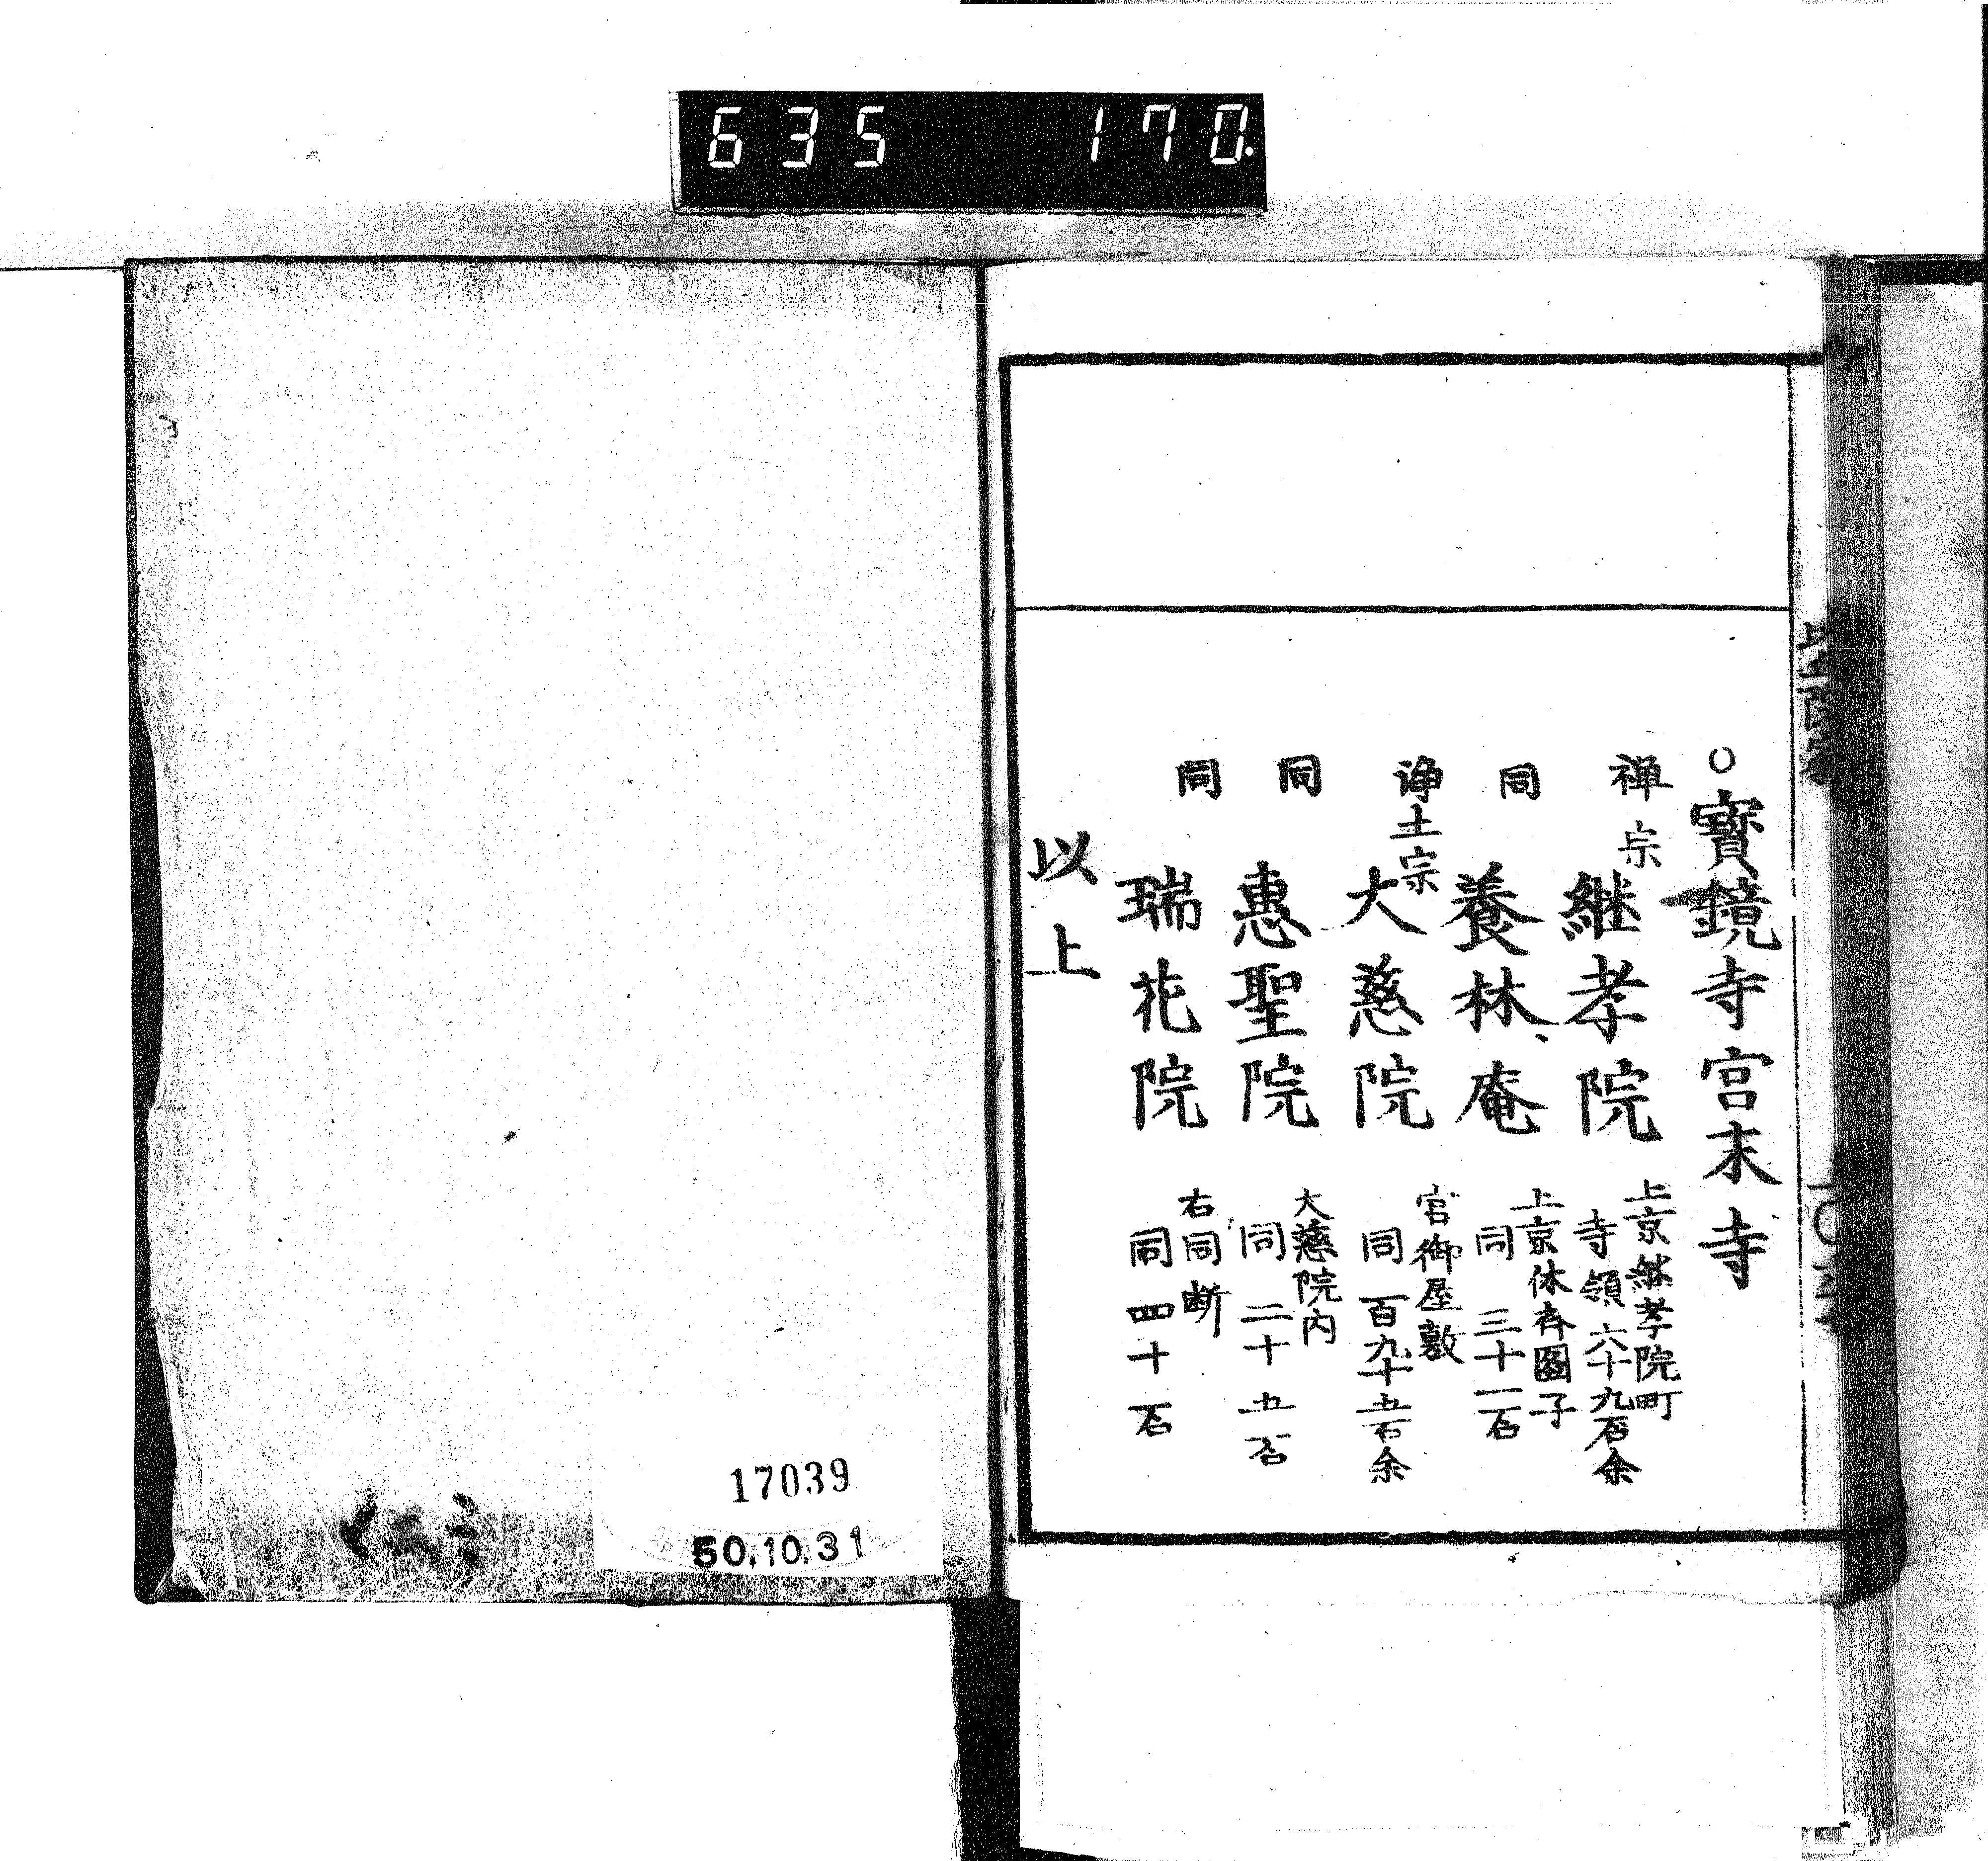 635 170.
○寳鏡寺宮末寺
禅宗 継孝院 上京継孝院町
寺領 六十九石余
同 養林庵 上京休斉圖子
同 三十一石
浄土宗 大慈院 宮御屋敷
同 百九十五石余
同 惠聖院 大慈院内
同 二十五石
同 瑞花院 右同断
同 四十石
以上
17039
50.10.31